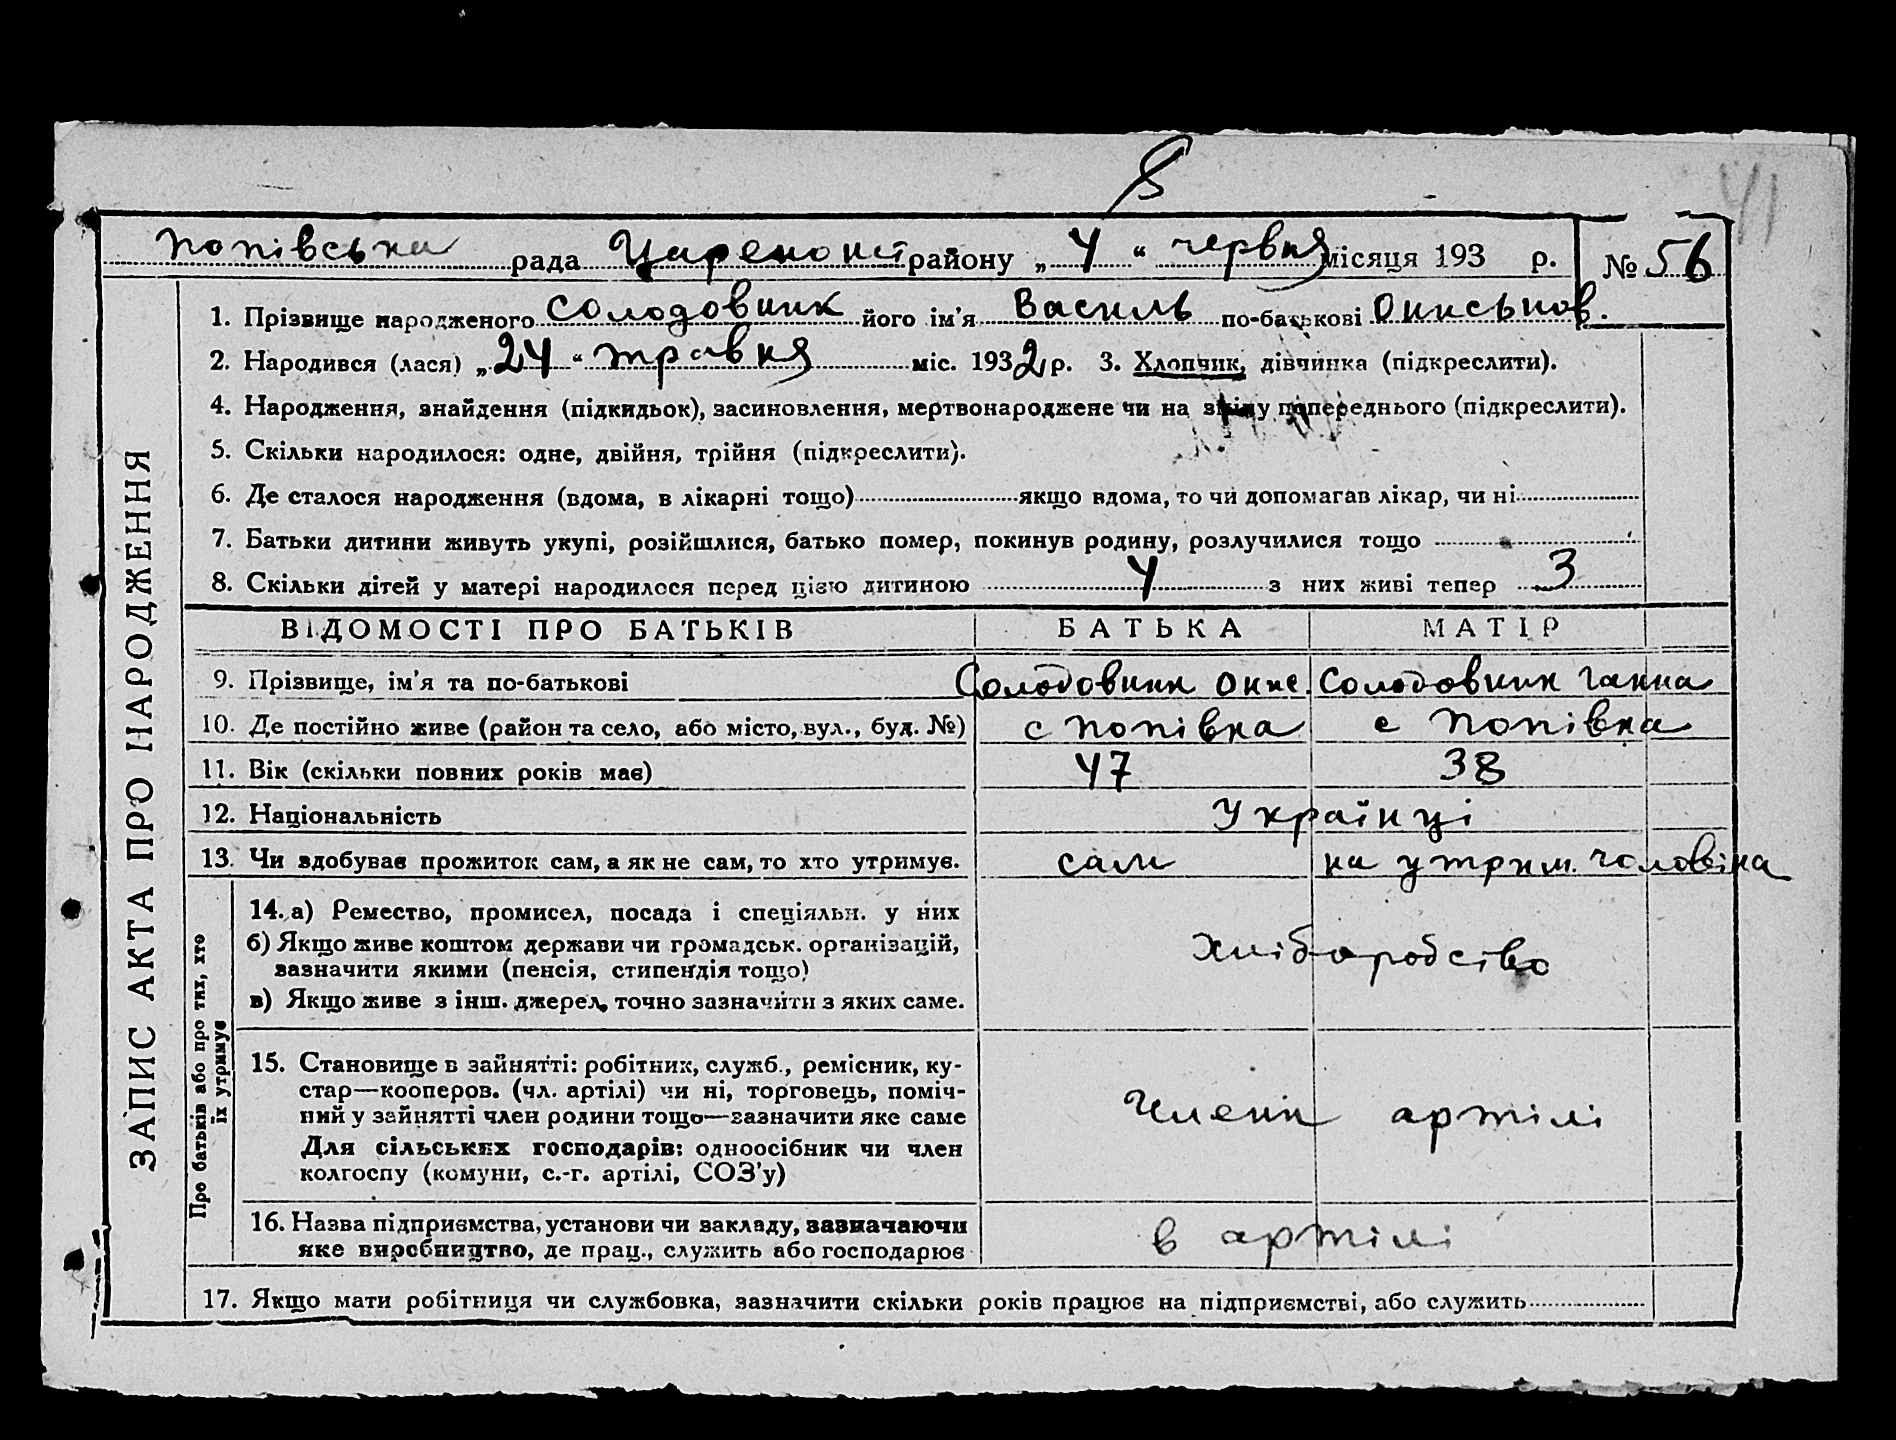 41
Попівська рада Цареконст району „ 4 “ червня місяця 193 р. № 56
1. Прізвище народженого Солодовник його ім'я Василь по-батькові Ониськов.
2. Народився (лася) „ 24 “ травня міс. 1932 р. 3. Хлопчик, дівчинка (підкреслити).
4. Народження, знайдення (підкидьок), засиновлення, мертвонароджене чи на зміну попереднього (підкреслити).
5. Скільки народилося: одне, двійня, трійня (підкреслити).
6. Де сталося народження (вдома, в лікарні тощо) якщо вдома, то чи допомагав лікар, чи ні
7. Батьки дитини живуть укупі, розійшлися, батько помер, покинув родину, розлучилися тощо
8. Скільки дітей у матері народилося перед цією дитиною 4 з них живі тепер 3
ЗАПИС АКТА ПРО НАРОДЖЕННЯ
ВІДОМОСТІ ПРО БАТЬКІВ БАТЬКА МАТІР
9. Прізвище, ім'я та по-батькові Солодовник Онис. Солодовник Ганна
10. Де постійно живе (район та село, або місто, вул., буд. №) с Попівка с Попівка
11. Вік (скільки повних років має) 47 38
12. Національність Українці
13. Чи здобуває прожиток сам, а як не сам, то хто утримує. сам на утрим. чоловіка
Про батьків або про тих, хто
їх утримує
14. а) Ремество, промисел, посада і спеціяльн. у них
б) Якщо живе коштом держави чи громадськ. організацій,
зазначити якими (пенсія, стипендія тощо)
хліборобство
в) Якщо живе з інш. джерел, точно зазначити з яких саме.
15. Становище в зайнятті: робітник, служб., ремісник, ку-
стар—кооперов. (чл. артілі) чи ні, торговець, поміч-
ний у зайнятті член родини тощо—зазначити яке саме
члени артілі
Для сільських господарів: одноосібник чи член
колгоспу (комуни, с.-г. артілі, СОЗ'у)
16. Назва підприємства, установи чи закладу, зазначаючи
яке виробництво, де прац., служить або господарює
в артілі
17. Якщо мати робітниця чи службовка, зазначити скільки років працює на підприємстві, або служить